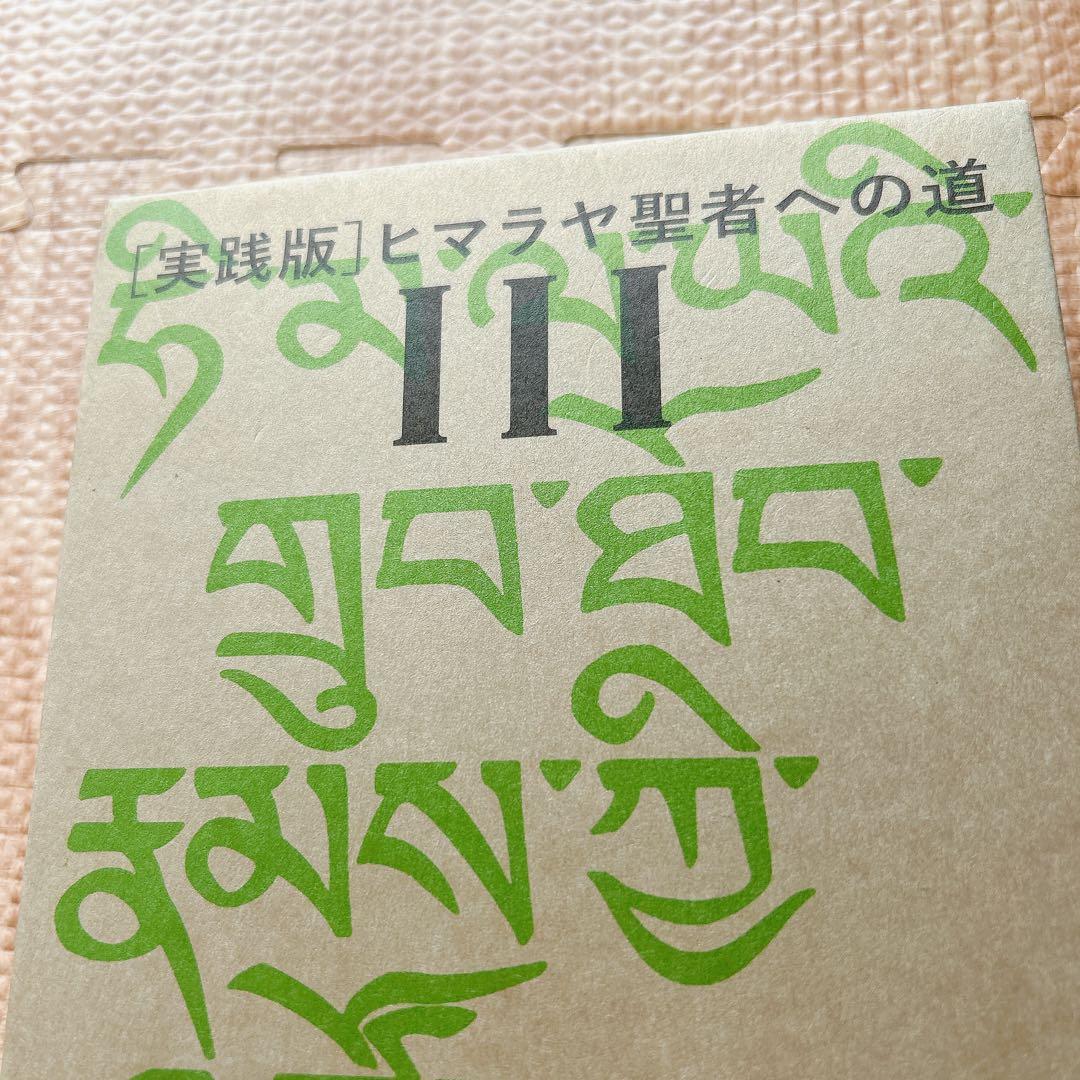 [実践版]ヒマラヤ聖者への道
III
ཧི་མ་ལ་ཡའི་
གྲུབ་ཐོབ་
རྣམས་ཀྱི་